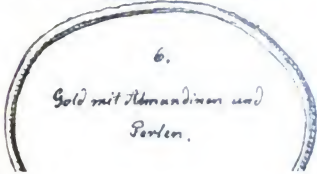 6.
Gold mit Almandinen und
Perlen.